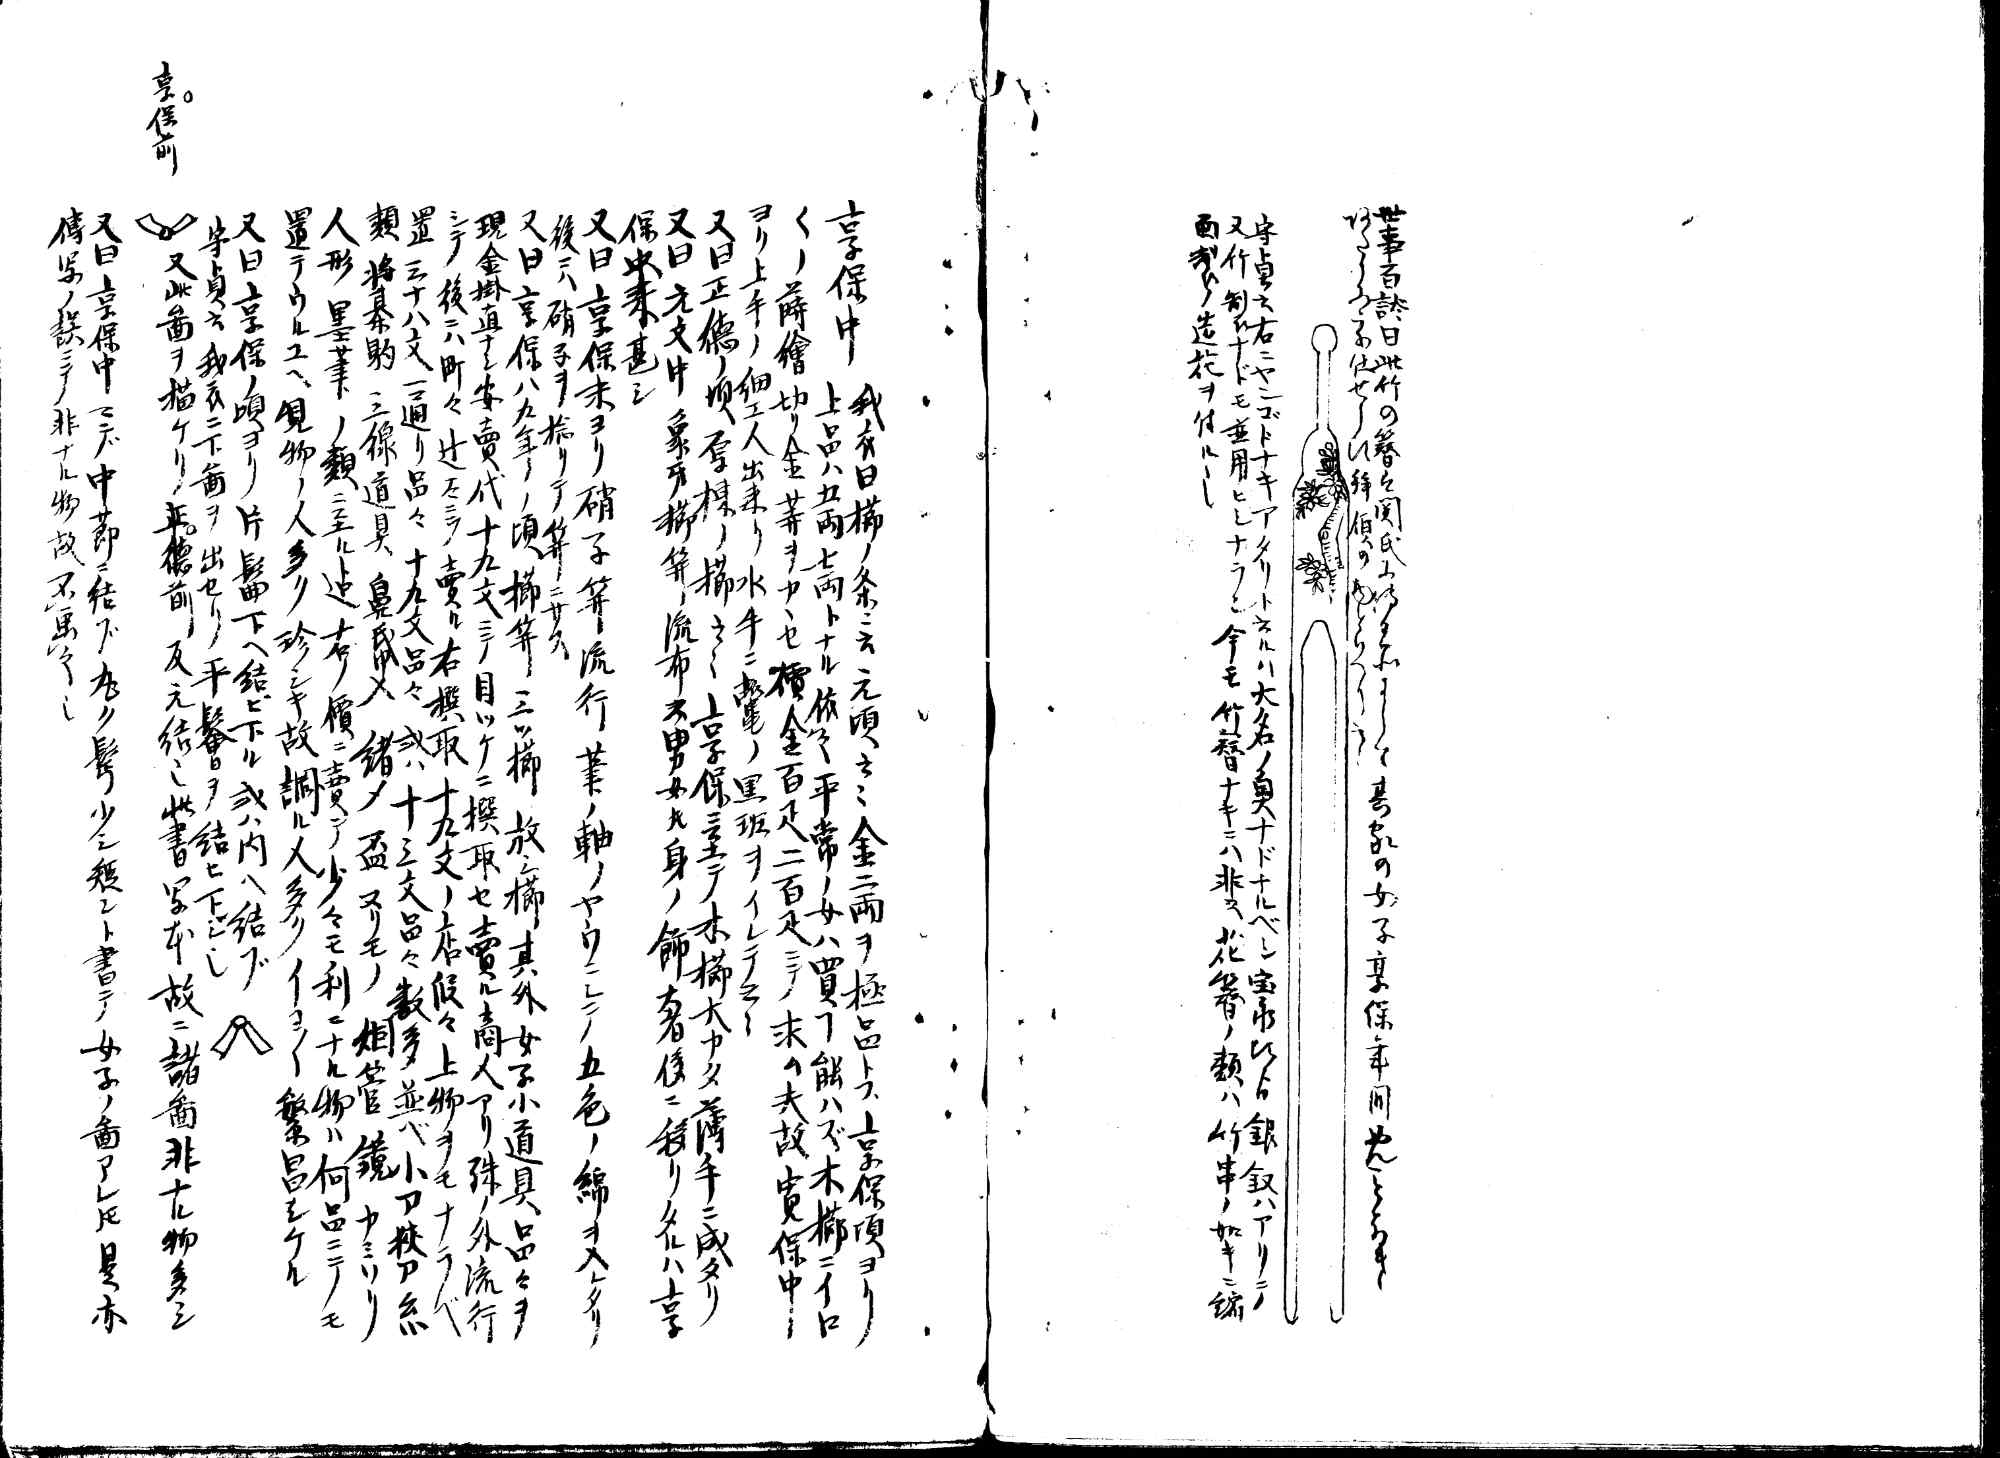 世事百談曰此竹の簪は関氏
其家の女子享保年間
守貞云右ニヤンゴトナキアタリト云ルハ大名ノ奥ナドナルベシ宝永頃ヨリ銀釵ハアリシニ
又竹制ナドモ並用ヒシナラン今モ竹簪ナキニハ非ズ花簪ノ類ハ竹串ノ如キニ縮
面製ノ造花ヲ付ルヽ也
享保中 我衣曰櫛ノ条ニ云元禄頃云々金二両ヲ極品トス享保頃ヨリ
上品ハ五両七両トナル依之平常ノ女ハ買フ能ハズ木櫛ニイロ
〱ノ蒔繪切リ金等ヲサヽセ價金百疋二百疋ニテ求ム夫故寛保中
ヨリ上手ノ細工人出来リ水牛ニ鼈ノ黒斑ヲイレテ云々
又曰正徳ノ頃厚棟ノ櫛云々享保ニ至テ木櫛大カタ薄手ニ成タリ
又曰元文中象牙櫛笄流布ス男女共身ノ飾奢侈ニ移リタルハ享
保以来甚シ
又曰享保末ヨリ硝子笄流行筆ノ軸ノヤウニシテ五色ノ綿ヲ入レタリ
後ニハ硝子ヲ捻リテ笄ニサス
又曰享保八九年ノ頃櫛笄三ツ櫛放シ櫛其外女子小道具品々ヲ
現金掛直ナシ安賣代十九文ニテ目ツケニ撰取セ賣ル商人アリ殊ノ外流行
シテ後ニハ町々辻々ニテ賣ル右撰取十九文ノ店段々上物ヲモナラベ
置三十八文一通リ品々十九文品々或ハ十三文品々数多並ベ小刀挾刀糸
類将棊駒三線道具鼻帋入緒〆盃ヌリモノ烟管鏡カミソリ
人形墨筆ノ類ニ至ル迄右ノ價ニ賣テ少々モ利ニナル物ハ何品ニテモ
置テウルユヘ見物ノ人多ク珍シキ故調ル人多クイヨ〱繁昌シケル
又曰享保ノ頃ヨリ片髷下ヘ結ビ下ル或ハ内ヘ結ブ
守貞云我衣ニ下畵ヲ出セリ平髷ヲ結ヒ下ビシ
享保前
又此畵ヲ描ケリ正徳前反元結シ此書写本故ニ諸畵非ナル物多シ
又曰享保中マデ中節ニ結ブ丸ク髩少シ短シト書テ女子ノ畵アレ共是亦
傳写ノ誤ニテ非ナル物故不画之也